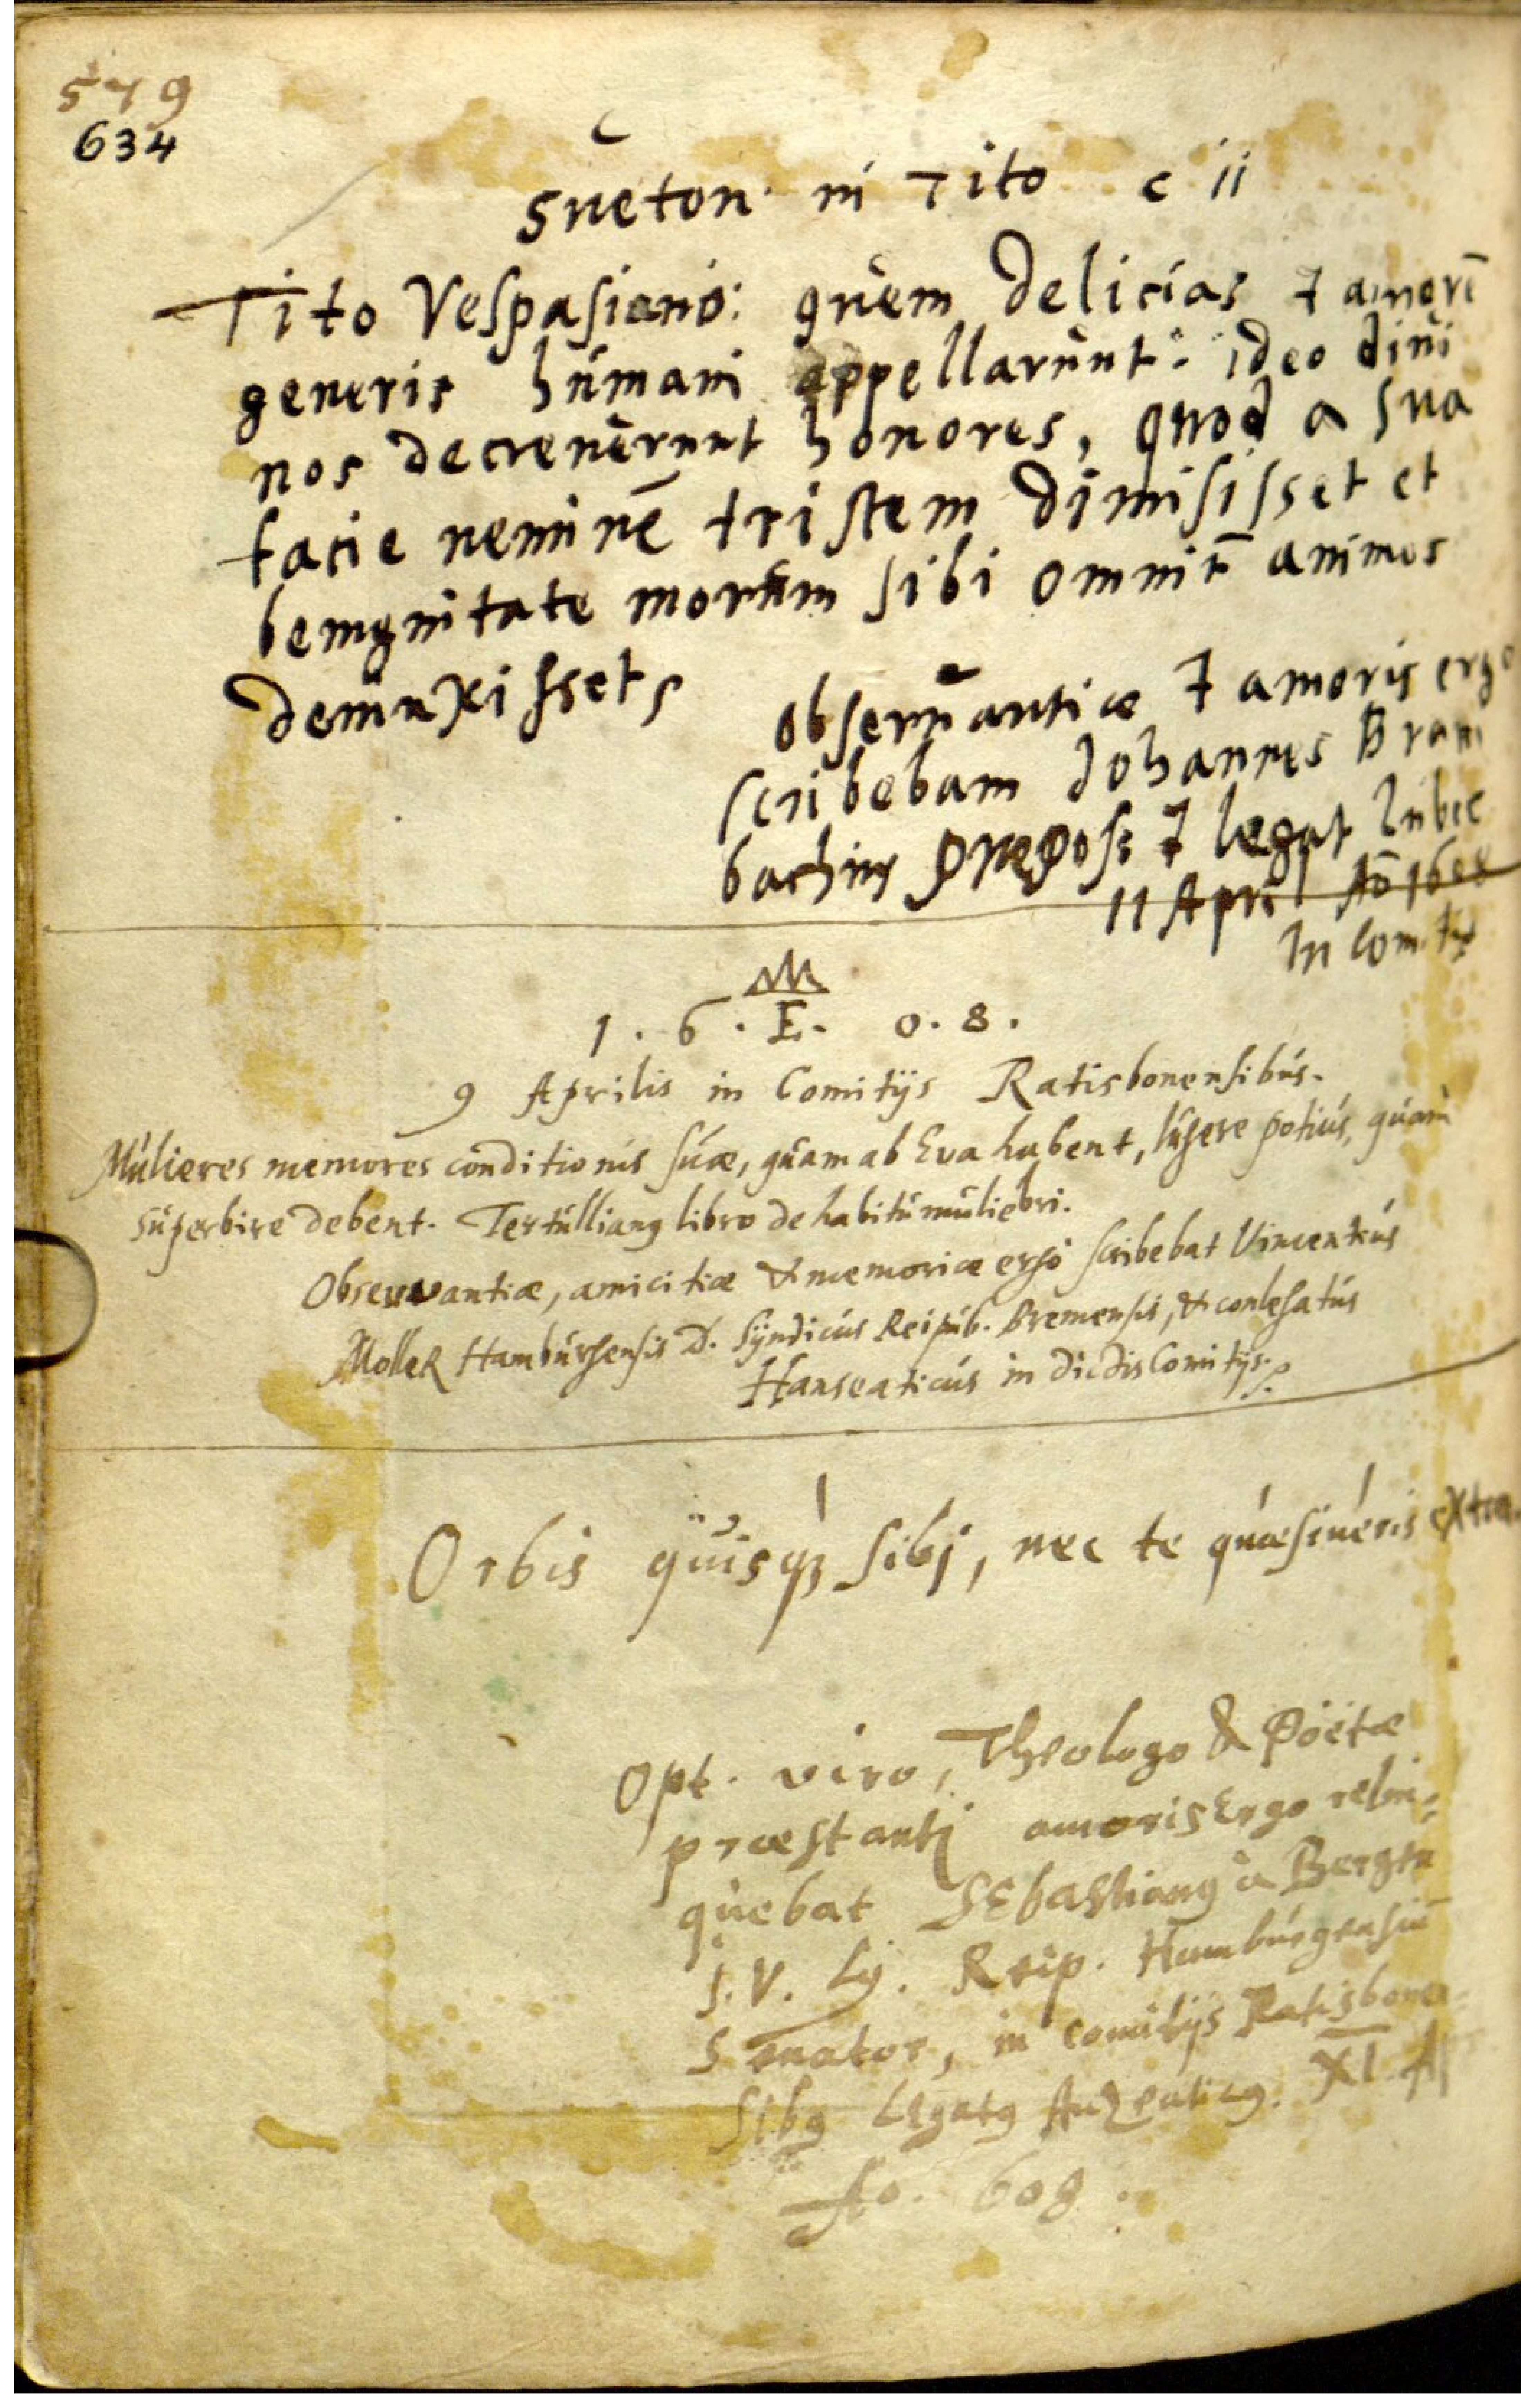 579
634
Sueton. in Tito c ii
Tito Vespasiano: quem delicias & amorē
generis humani appellarunt: ideo diui
nos decreuerunt honores, quod a sua
facie neminē tristem dimisisset et
benignitate morum sibi omniū animos
deuinxissets
obseruantiæ & amoris ergo
scribebam Johannes Bram
bachius & legat Lubec
11 April Aō 1608
In Comitijs
1 . 6 . E. 0. 8 .
9 Aprilis in Comitijs Ratisbonensibus.
Mulieres memores conditionis suæ, quam ab Eva habent, lugere potius, quam
superbire debent. Tertullianꝰ libro de habitu muliebri.
Observantiæ, amicitiæ & memoriæ ergo scribebat Vincentius
Moller Hamburgensis D. Syndicus Reipub. Bremensis, & conlegatus
Hanseaticus in dictis Comitijs.
Orbis quisqꝫ sibj, nec te quæsiueris extra.
Opt. viro, Theologo & Poëtæ
præstantj amoris Ergo relin-
quebat Sebastianꝰ à Bergen
I. V. L. Reip. Hamburgensiū
Senator, in comitijs Ratisbonen-
sibꝰ Legatꝰ Anzeaticꝰ. XI. Ap
Ao. 608.